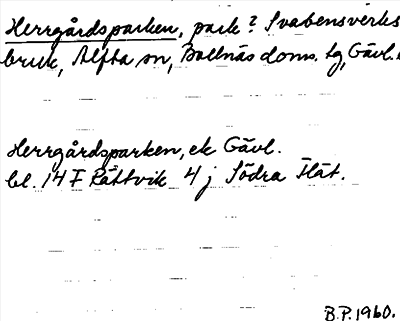 Herrgårdsparken, park? Svabensverks
bruk, Alfta sn, Bollnäs doms. tg, Gävl.
Herrgårdsparken, ek Gävl.
bl. 14 F Rättvik 4 j Södra
B.P. 1960.